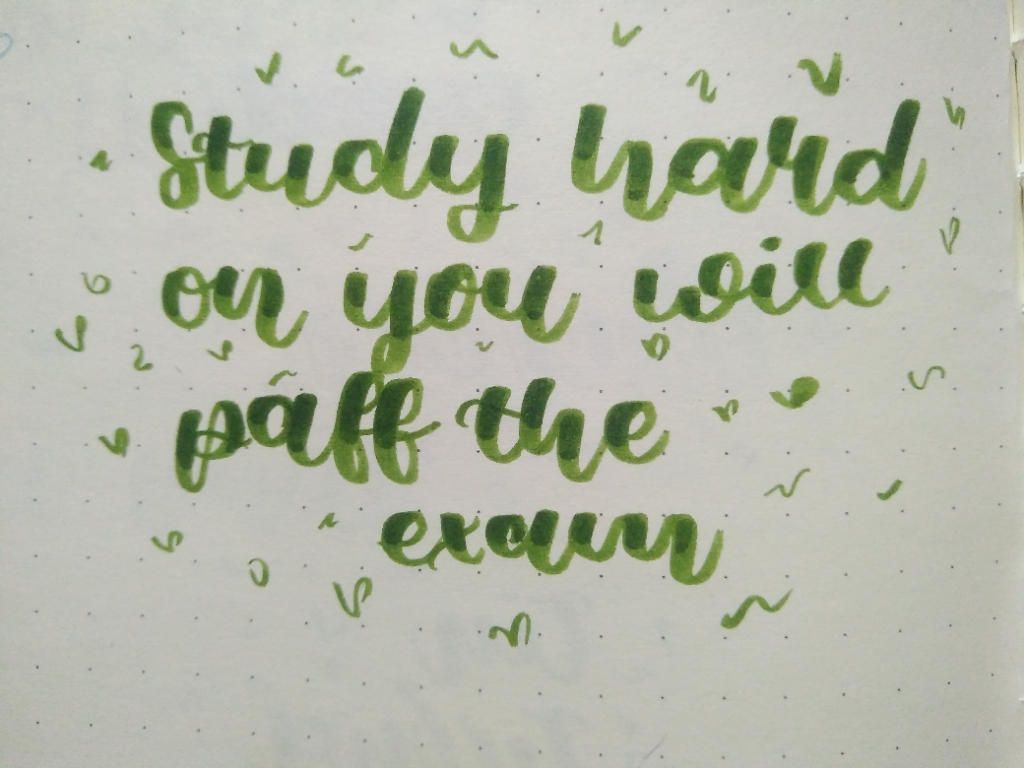 Study hard
on you will
paff the
exam